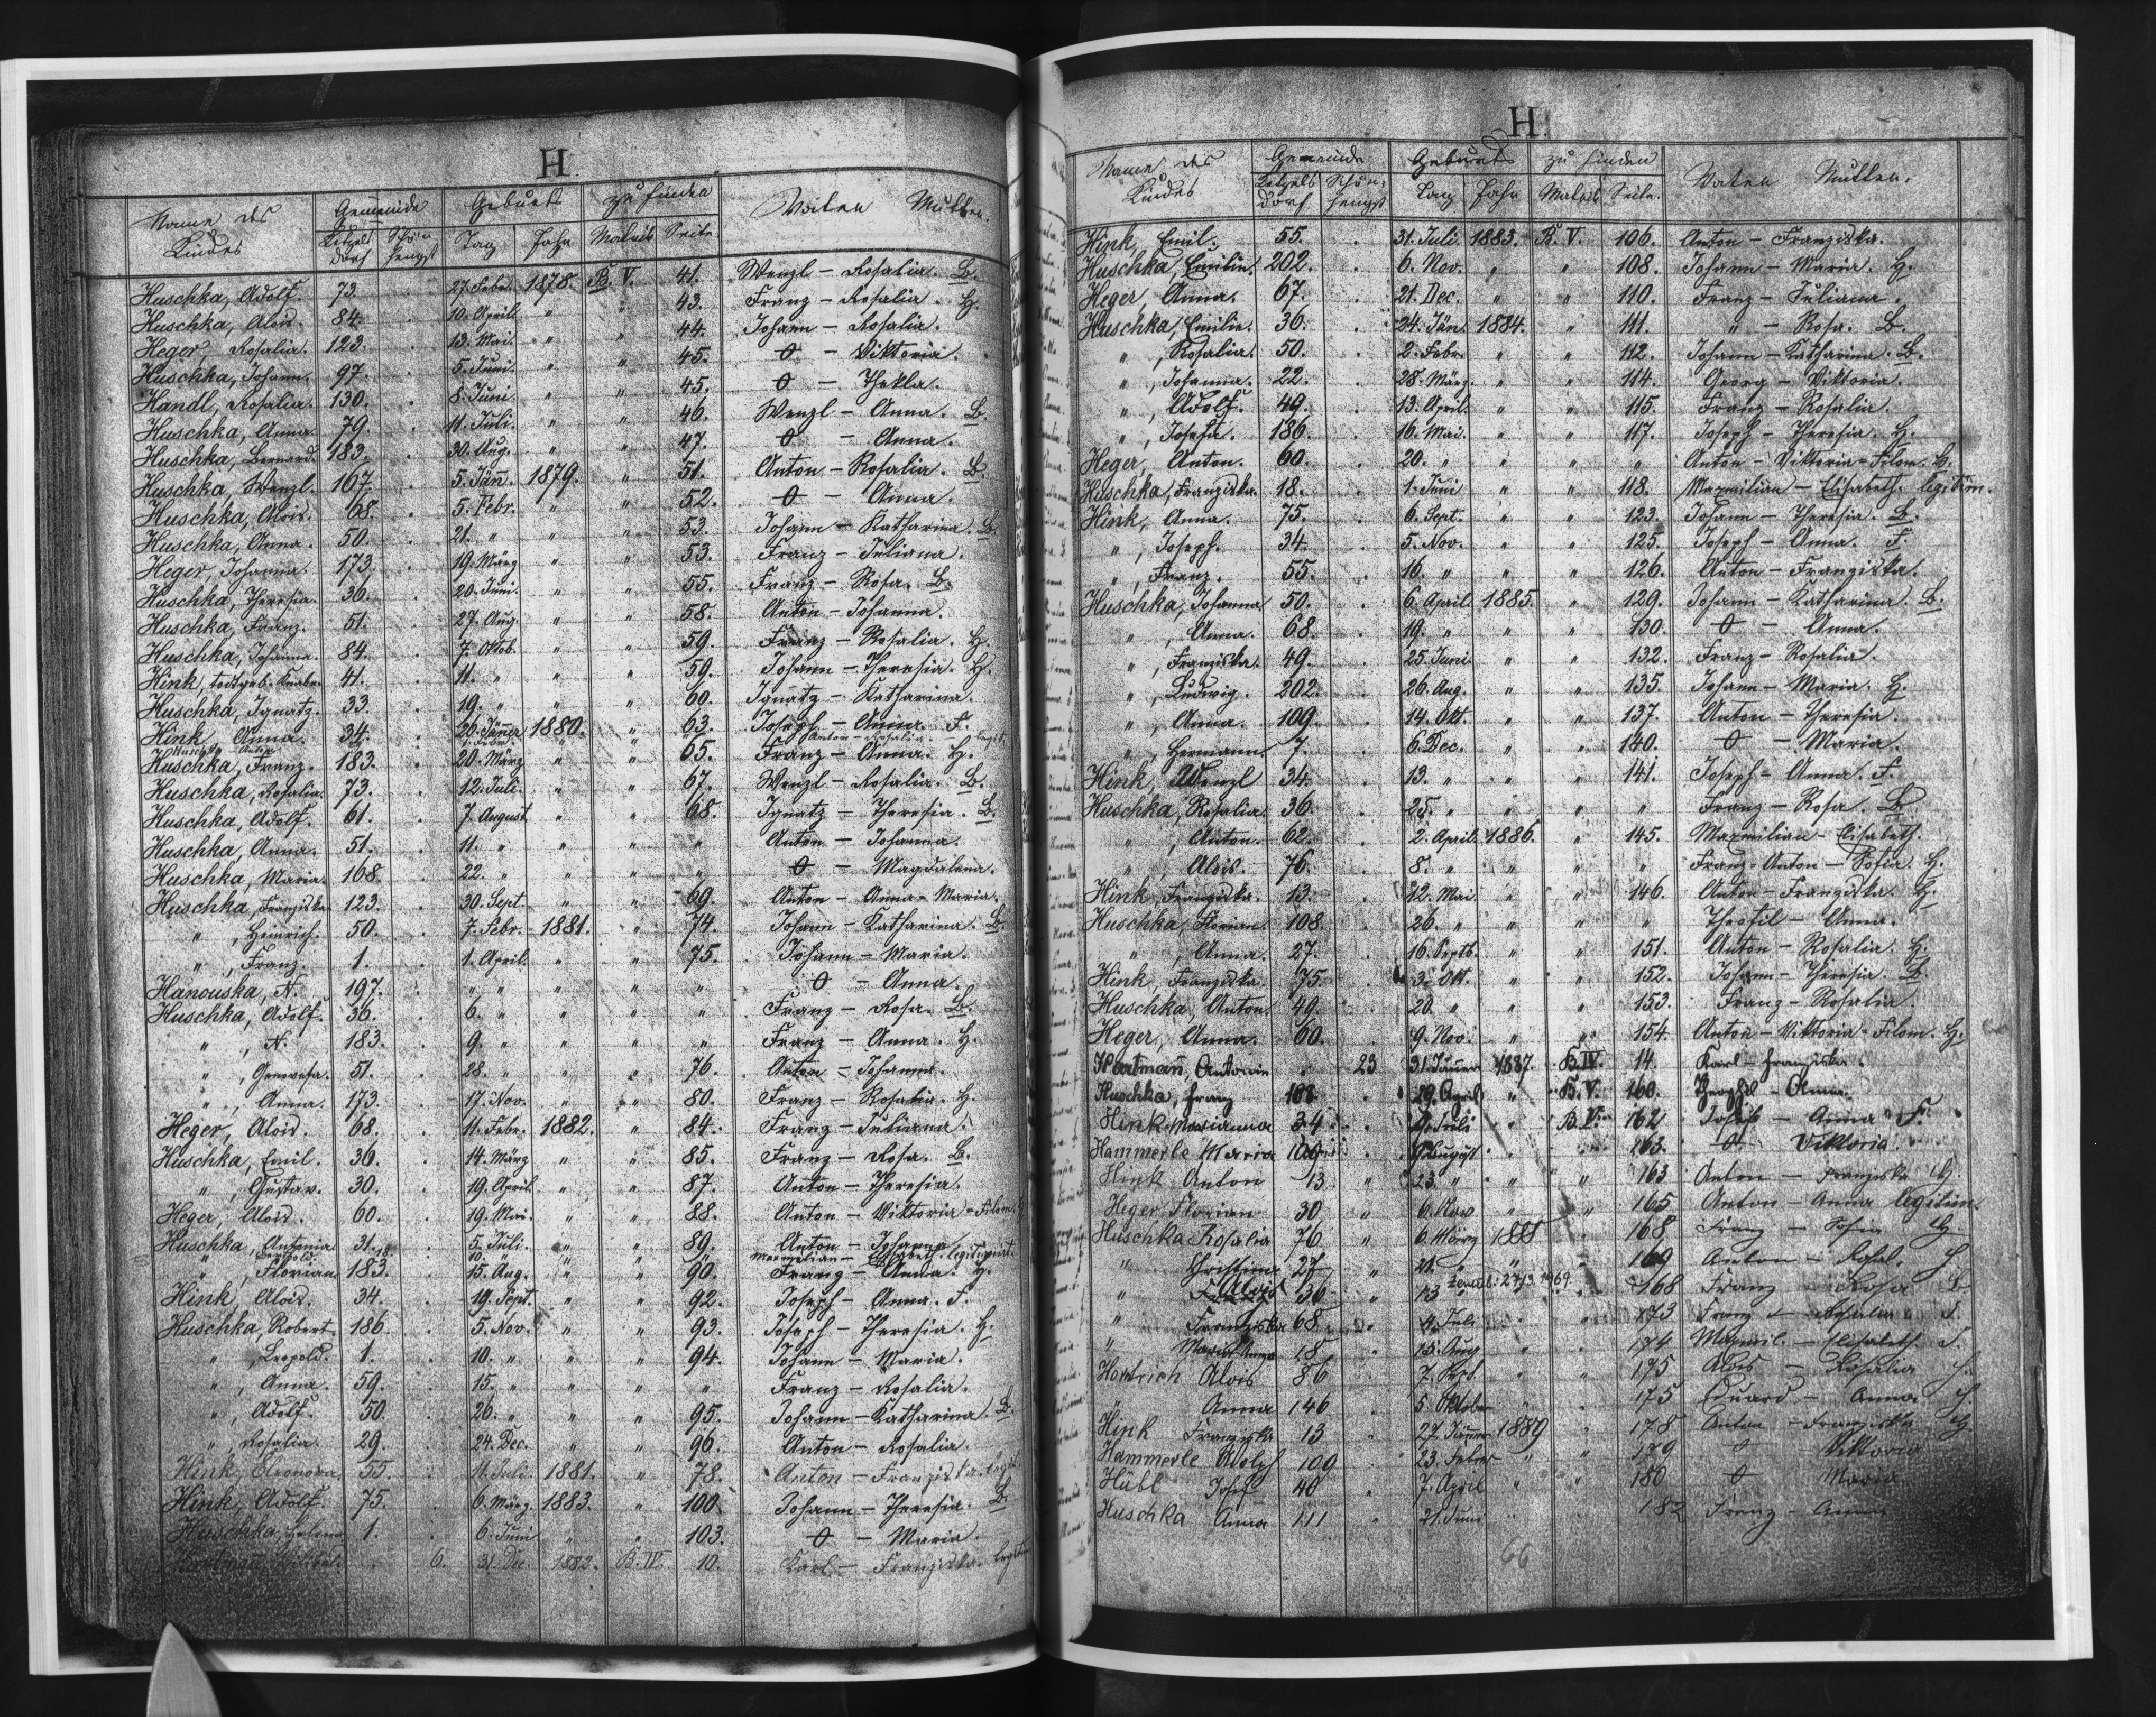 H.
Name des Kindes Gemeinde Geburts zu finden Vater Mutter.
Ketzelsdorf Schönhengst Tag Jahr Matrik Seite.
Huschka, Adolf. 73. 27. Febr. 1878. B. V. 41. Wenzl – Rosalia. B.
Huschka, Alois. 84. 10. April " " 43. Franz – Rosalia. H.
Heger, Rosalia. 123. 13. Mai. " " 44. Johann – Rosalia.
Huschka, Johann. 97. 5. Juni. " " 45. O – Viktoria.
Handl, Rosalia. 130. 8. Juni. " " 45. O – Thekla.
Huschka, Anna. 79. 11. Juli. " " 46. Wenzl – Anna. B.
Huschka, Bernard. 183. 30. Aug. " " 47. O – Anna.
Huschka, Wenzl. 167. 5. Jän. 1879. " 51. Anton – Rosalia. B.
Huschka, Alois. 68. 5. Febr. " " 52. O – Anna.
Huschka, Anna. 50. 21. " " " 53. Johann – Katharina. B.
Heger, Johanna. 173. 19. März " " 53. Franz – Juliana.
Huschka, Theresia. 36. 20. Juni. " " 55. Franz – Rosa. B.
Huschka, Franz. 51. 27. Aug. " " 58. Anton – Johanna.
Huschka, Johanna. 84. 7. Oktob. " " 59. Franz – Rosalia. H.
Hink, todtgeb. Knabe. 41. 11. " " " 59. Johann – Theresia. H.
Huschka, Ignatz. 33. 19. " " " 60. Ignatz – Katharina.
Hink, Anna. 34. 20. Jänner 1880. " 63. Joseph – Anna. F.
Huschka – Anton 1. Febr. " Anton – Rosalia. legit.
Huschka, Franz. 183. 20. März " " 65. Franz – Anna. H.
Huschka, Rosalia. 73. 12. Juli. " " 67. Wenzl – Rosalia. B.
Huschka, Adolf. 61. 7. August " " 68. Ignatz – Theresia. B.
Huschka, Anna. 51. 11. " " " " Anton – Johanna.
Huschka, Maria. 168. 22. " " " " O – Magdalena.
Huschka, Franziska. 123. 30. Sept. " " 69. Anton – Anna – Maria.
" , Heinrich. 50. 7. Febr. 1881. " 74. Johann – Katharina. B.
" , Franz. 1. 1. April. " " 75. Johann – Maria.
Hanouska, N. 197. " " " " " O – Anna.
Huschka, Adolf. 36. 6. " " " " Franz – Rosa. B.
" , N. 183. 9. " " " " Franz – Anna. H.
" , Genovefa. 51. 28. " " " 76. Anton – Johanna.
" , Anna. 173. 17. Nov. " " 80. Franz – Rosalia. H.
Heger, Alois. 68. 11. Febr. 1882. " 84. Franz – Juliana.
Huschka, Emil. 36. 14. März " " 85. Franz – Rosa. B.
" , Gustav. 30. 19. April. " " 87. Anton – Theresia.
Heger, Alois. 60. 19. Mai. " " 88. Anton – Viktoria – Filom.
Huschka, Antonia. 31. 5. Juli. " " 89. Anton – Johanna.
" Leopold. 18. 10. " " Maxmilian – Elisabeth. legitimirt.
" , Florian. 183. 15. Aug. " " 90. Franz – Anna. H.
Hink, Alois. 34. 19. Sept. " " 92. Joseph – Anna. F.
Huschka, Robert. 186. 5. Nov. " " 93. Joseph – Theresia. H.
" , Leopold. 1. 10. " " " 94. Johann – Maria.
" , Anna. 59. 15. " " " " Franz – Rosalia.
" , Adolf. 50. 26. " " " 95. Johann – Katharina. B.
" , Rosalia. 29. 24. Dec. " " 96. Anton – Rosalia.
Hink, Eleonora. 55. 11. Juli. 1881. " 78. Anton – Franziska. legit.
Hink, Adolf. 75. 6. März. 1883. " 100. Johann – Theresia. B.
Huschka, Helena. 1. 6. Juni " " 103. O – Maria.
Hartmann, 6. 31. Dec. 1882. B. IV. 10. Karl – Franziska. legitim
H.
Name des Kindes Gemeinde Geburts zu finden Vater Mutter.
Ketzelsdorf. Schönhengst Tag Jahr Matrik Seite.
Hink, Emil. 55. 31. Juli 1883. B. V. 106. Anton – Franziska.
Huschka, Emilie. 202. 6. Nov. " " 108. Johann – Maria. H.
Heger, Anna. 67. 21. Dec. " " 110. Franz – Juliana.
Huschka, Emilie. 36. 24. Jän. 1884. " 111. " – Rosa. B.
" , Rosalia. 50. 2. Febr. " " 112. Johann – Katharina. B.
" , Johanna. 22. 28. März. " " 114. Georg – Viktoria.
" , Adolf. 49. 13. April. " " 115. Franz – Rosalia.
" , Josefa. 186. 16. Mai. " " 117. Joseph – Theresia. H.
Heger, Anton. 60. 20. " " " " Anton – Viktoria – Filom. B.
Huschka, Franziska. 18. 1. Juni " " 118. Maxmilian – Elisabeth. legitim.
Hink, Anna. 75. 6. Sept. " " 123. Johann – Theresia. B.
" , Joseph. 34. 5. Nov. " " 125. Joseph – Anna. F.
" , Franz. 55. 16. " " " 126. Anton – Franziska.
Huschka, Johanna. 50. 6. April. 1885. " 129. Johann – Katharina. B.
" , Anna. 68. 19. " " " 130. O – Anna.
" , Franziska. 49. 25. Juni " " 132. Franz – Rosalia.
" , Ludwig. 202. 26. Aug. " " 135. Johann – Maria. H.
" , Anna. 109. 14. Okt. " " 137. Anton – Theresia.
" , Hermann. 7. 6. Dec. " " 140. O – Maria.
Hink, Wenzl 34. 13. " " " 141. Joseph – Anna. F.
Huschka, Rosalia. 36. 25. " " " " Franz – Rosa. B.
" , Anton. 62. 2. April. 1886. " 145. Maxmilian – Elisabeth.
" , Alois. 76. 8. " " " " Franz – Anton – Sofia. H.
Hink, Franziska. 13. 12. Mai. " " 146. Anton – Franziska. H.
Huschka, Florian. 108. 26. " " " " Theofil – Anna.
" , Anna. 27. 16. Septb. " " 151. Anton – Rosalia. H.
Hink, Franziska. 75. 3. Okt. " " 152. Johann – Theresia. B.
Huschka, Anton. 49. 20. " " " 153. Franz – Rosalia.
Heger, Anna. 60. 9. Nov. " " 154. Anton – Viktoria – Filom. H.
Hartmann, Antonin 23 31. Jänner 1887. B. IV. 14. Karl – Franziska.
Huschka, Franz 108. 29. April " B. V. 160. Theophil – Anna.
Hink Marianna 34 Juli " B. V. 162 Josef – Anna F.
Hammerle Maria 109 August " " 163. O Viktoria
Hink Anton 13 " 23. " " " 163 Anton – Franziska H
Heger Florian 30 " 6. Nov " " 165 Anton – Anna legitim.
Huschka Rosalia 76 " 6. März 1888 " 168 Franz – Sofia H
" Christina 27 " 21. " " " 169 Anton – Rosal. H
" Alois 36 " 13 " zemřel: 27/3. 1969. " 168 Franz – Rosa B
" Franziska 68 " 4. Juli " " 173 Franz – J.
" Maria Anna 18 " 15. Aug " " 174 Maxmil. – Elisabeth J.
Hartrich Alois 86 7. Sept. " " 175 Alois – Rosalia H.
" Anna 146 5 Oktober " " 175 Eduard – Anna H.
Hink Franziska 13 27. Jänner 1889 " 178 Anton – Franziska H
Hammerle Adolf 109 23. Feber " " 179 O Viktoria
Hübl Josef 40 7. April " " 180 O Maria
Huschka Anna 111 " 21. Juni " 182 Franz – Anna
66